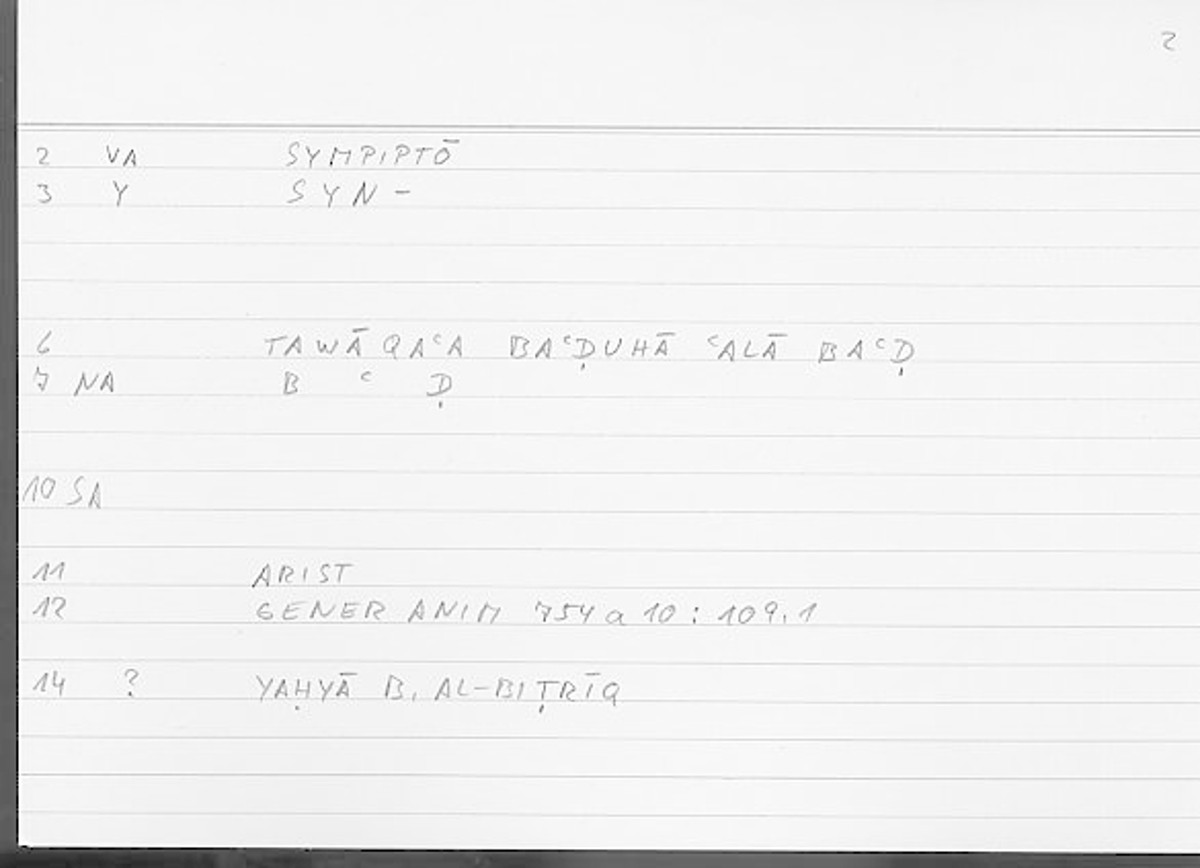 2
2 VA SYMPIPTŌ
3 Y SYN-
6 TAWĀQAʿA BAʿḌUHĀ ʿALĀ BAʿḌ
7 NA B ʿ Ḍ
10 SA
11 ARIST
12 GENER ANIM 754 a 10 : 109.1
14 ? YAḤYĀ B. AL-BIṬRĪQ